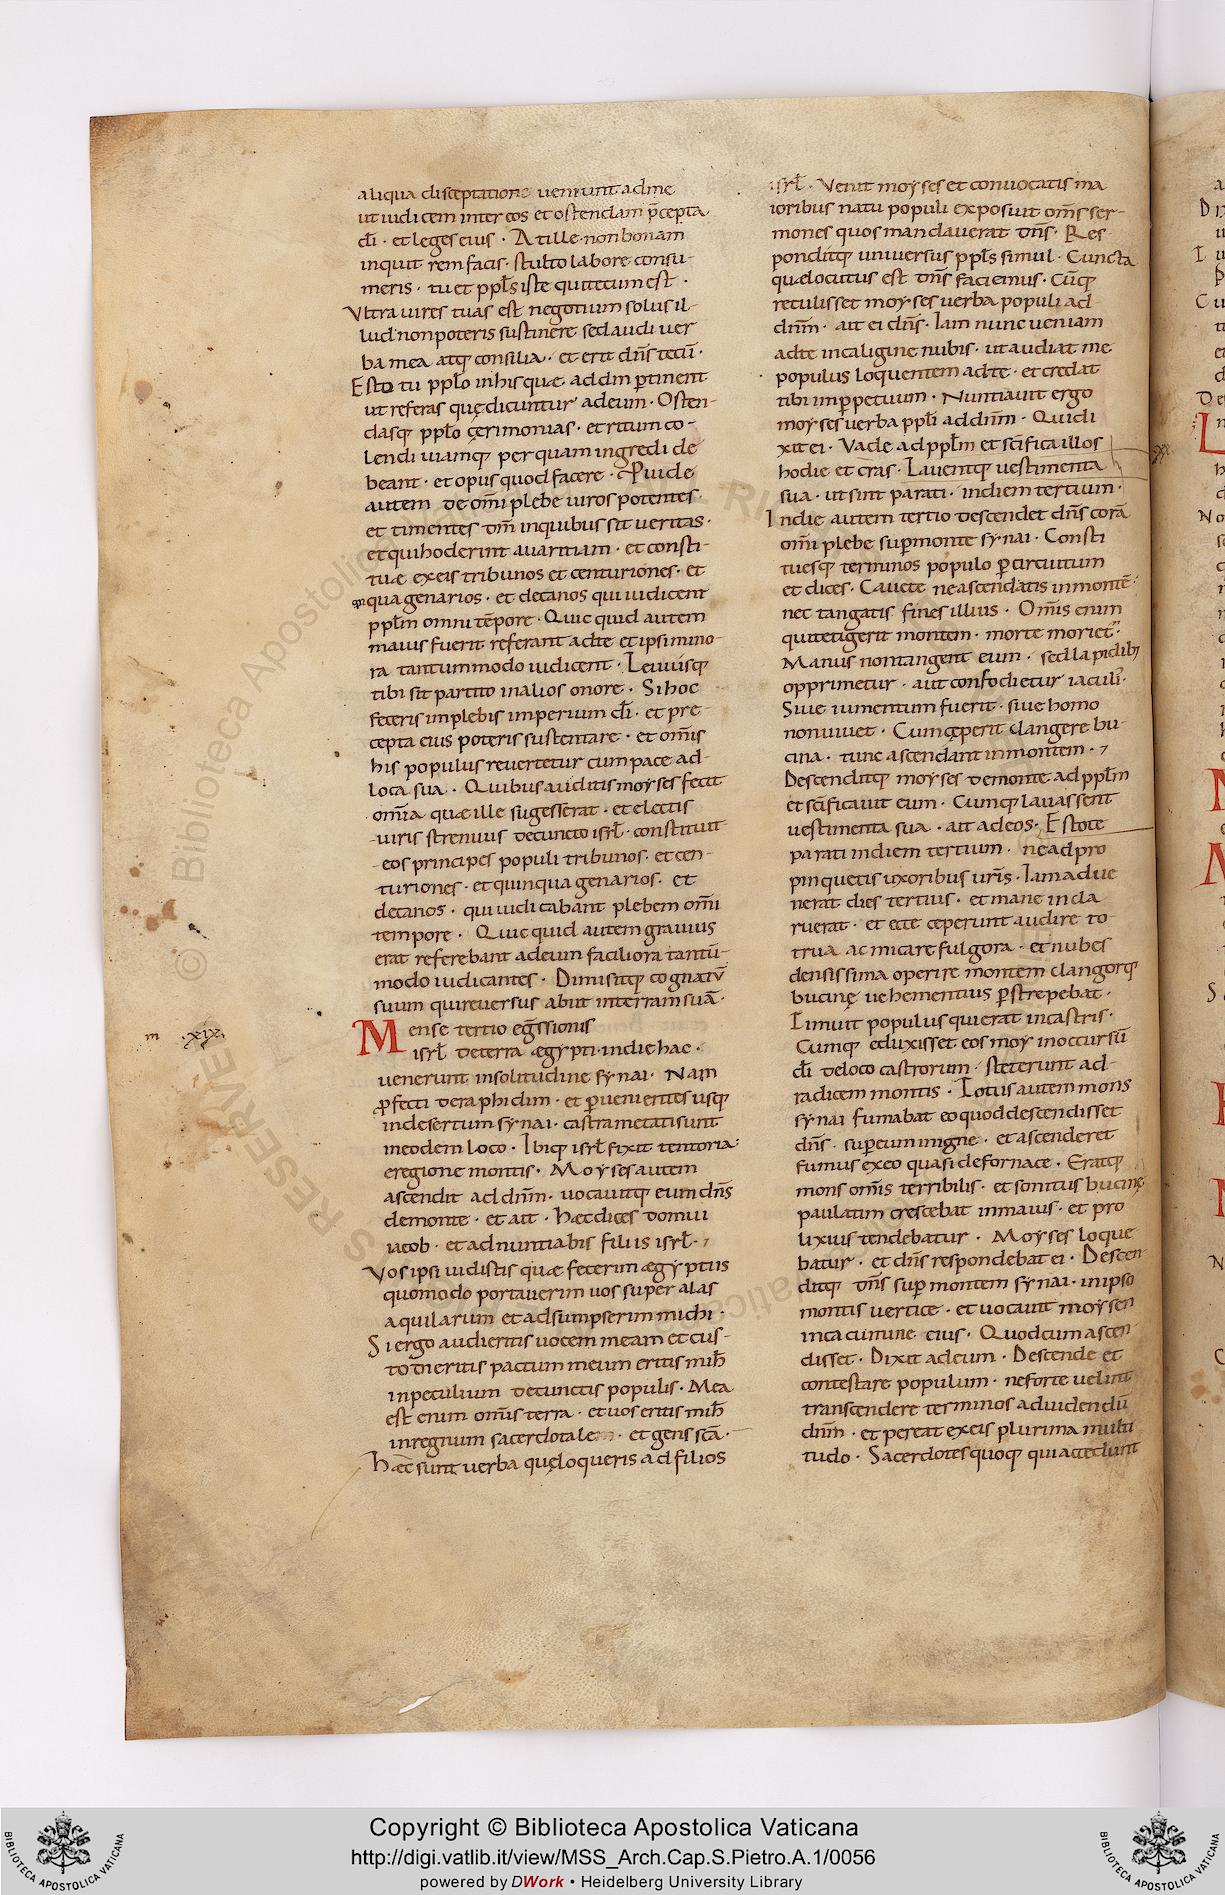 aliqua disceptatione veniunt ad me
ut iudicem inter eos et ostendam p̄cepta
dī · et leges eius · At ille non bonam
inquit rem facis · stulto labore consu-
meris · tu et ppl̄s iste qui tecum est ·
Vltra uires tuas est negotium solus il-
lud non poteris sustinere sed audi uer
ba mea atq; consilia · et erit dn̄s tecū ·
Esto tu ppl̄o in his quæ ad dm̄ ꝑtinent
ut referas quę dicuntur ad eum · Osten-
dasq; ppl̄o çerimonias · et ritum co-
lendi uiamq; per quam ingredi de
beant · et opus quod facere · Puide
autem de om̄i plebe uiros potentes ·
et timentes dm̄ in quibus sit ueritas ·
et qui hoderint auaritiam · et consti-
tue ex eis tribunos et centuriones · et
qnquagenarios · et decanos qui iudicent
ppl̄m omni tēpore · Quicquid autem
maius fuerit referant ad te et ipsi mino-
ra tantummodo iudicent · Leuiusq;
tibi sit partito in alios onore · Si hoc
feceris implebis imperium dī · et pre-
cepta eius poteris sustentare · et om̄is
his populus reuertetur cum pace ad
loca sua · Quibus auditis moyses fecit
om̄ia quæ ille sugesserat · et electis
uiris strenuis de cuncto isrl̄ · constituit
eos principes populi tribunos · et cen-
turiones · et quinquagenarios · et
decanos · qui iudicabant plebem om̄i
tempore · Quicquid autem grauius
erat referebant ad eum faciliora tantū-
modo iudicantes · Dimisitq; cognatū
suum qui reuersus abiit in terram suā ·
m · xix ·
Mense tertio egr̄ssionis
isrl̄ de terra ægypti · in die hac ·
uenerunt in solitudine synai · Nam
ꝓfecti de raphidim · et ꝑuenientes usq;
in desertum synai · castra metati sunt
in eodem loco · Ibiq; isrl̄ fixit tentoria ·
e regione montis · Moyses autem
ascendit ad dn̄m · uocauitq; eum dn̄s
de monte · et ait · Hæc dices domui
iacob · et adnuntiabis filiis isrl̄ ·
Vos ipsi uidistis quæ fecerim ægyptiis
quomodo portauerim uos super alas
aquilarum et adsumpserim michi ·
Si ergo audieritis uocem meam et cus-
todieritis pactum meum eritis mih̄
in peculium de cunctis populis · Mea
est enim omnis terra · et uos eritis mih̄
in regnum sacerdotale · et gens scā ·
Hæc sunt uerba quę loqueris ad filios
isrl̄ · Venit moyses et conuocatis ma
ioribus natu populi exposuit om̄s ser-
mones quos mandauerat dn̄s · Res
ponditq; uniuersus ppl̄s simul · Cuncta
quæ locutus est dn̄s faciemus · Cūq;
retulisset moyses uerba populi ad
dn̄m · ait ei dn̄s · Iam nunc ueniam
ad te in caligine nubis · ut audiat me
populus loquentem ad te · et credat
tibi in ꝑpetuum · Nuntiauit ergo
moyses uerba ppl̄i ad dn̄m · Qui di
xit ei · Vade ad ppl̄m et scīfica illos
hodie et cras · Lauentq; uestimenta
sua · ut sint parati · in diem tertium ·
In die autem tertio descendet dn̄s corā
om̄i plebe suꝑ monte synai · Consti
tuesq; terminos populo ꝑ circuitum
et dices · Cauete ne ascendatis in montē ·
nec tangatis fines illius · Om̄is enim
qui tetigerit montem · morte morietͬ ·
Manus non tanget eum · sed lapidib;
opprimetur · aut confodietur iaculi ·
Siue iumentum fuerit · siue homo
non uiuet · Cum cęperit clangere bu-
cina · tunc ascendant in montem ·
Descenditq; moyses de monte ad ppl̄m
et scīficauit eum · Cumq; lauassent
uestimenta sua · ait ad eos · Estote
parati in diem tertium · ne adpro
pinquetis uxoribus ur̄is · Iam adue
nerat dies tertius · et mane incla
ruerat · et ecce ceperunt audire to-
trua ac micare fulgora · et nubes
densissima operire montem clangorq;
bucinę uehementius ꝑstrepebat ·
Timuit populus qui erat in castris ·
Cumq; eduxisset eos moy in occursū
dī de loco castrorum · steterunt ad
radicem montis · Totus autem mons
synai fumabat eo quod descendisset
dn̄s · super eum in igne · et ascenderet
fumus ex eo quasi de fornace · Eratq;
mons om̄is terribilis · et sonitus bucinę
paulatim crescebat in maius · et pro
lixius tendebatur · Moyses loque
batur · et dn̄s respondebat ei · Descen
ditq; dn̄s suꝑ montem synai · in ipso
montis uertice · et uocauit moysen
in cacumine eius · Quo cum ascen
disset · Dixit ad eum · Descende et
contestare populum · ne forte uelint
transcendere terminos ad uidendū
dn̄m · et pereat ex eis plurima multi
tudo · Sacerdotes quoq; qui accedunt
xx
© Biblioteca Apostolica Vaticana
Copyright © Biblioteca Apostolica Vaticana
http://digi.vatlib.it/view/MSS_Arch.Cap.S.Pietro.A.1/0056
powered by DWork • Heidelberg University Library
BIBLIOTECA APOSTOLICA VATICANA
BIBLIOTECA APOSTOLICA VATICANA